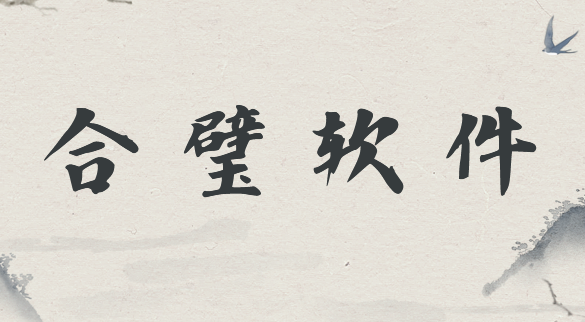 合璧软件